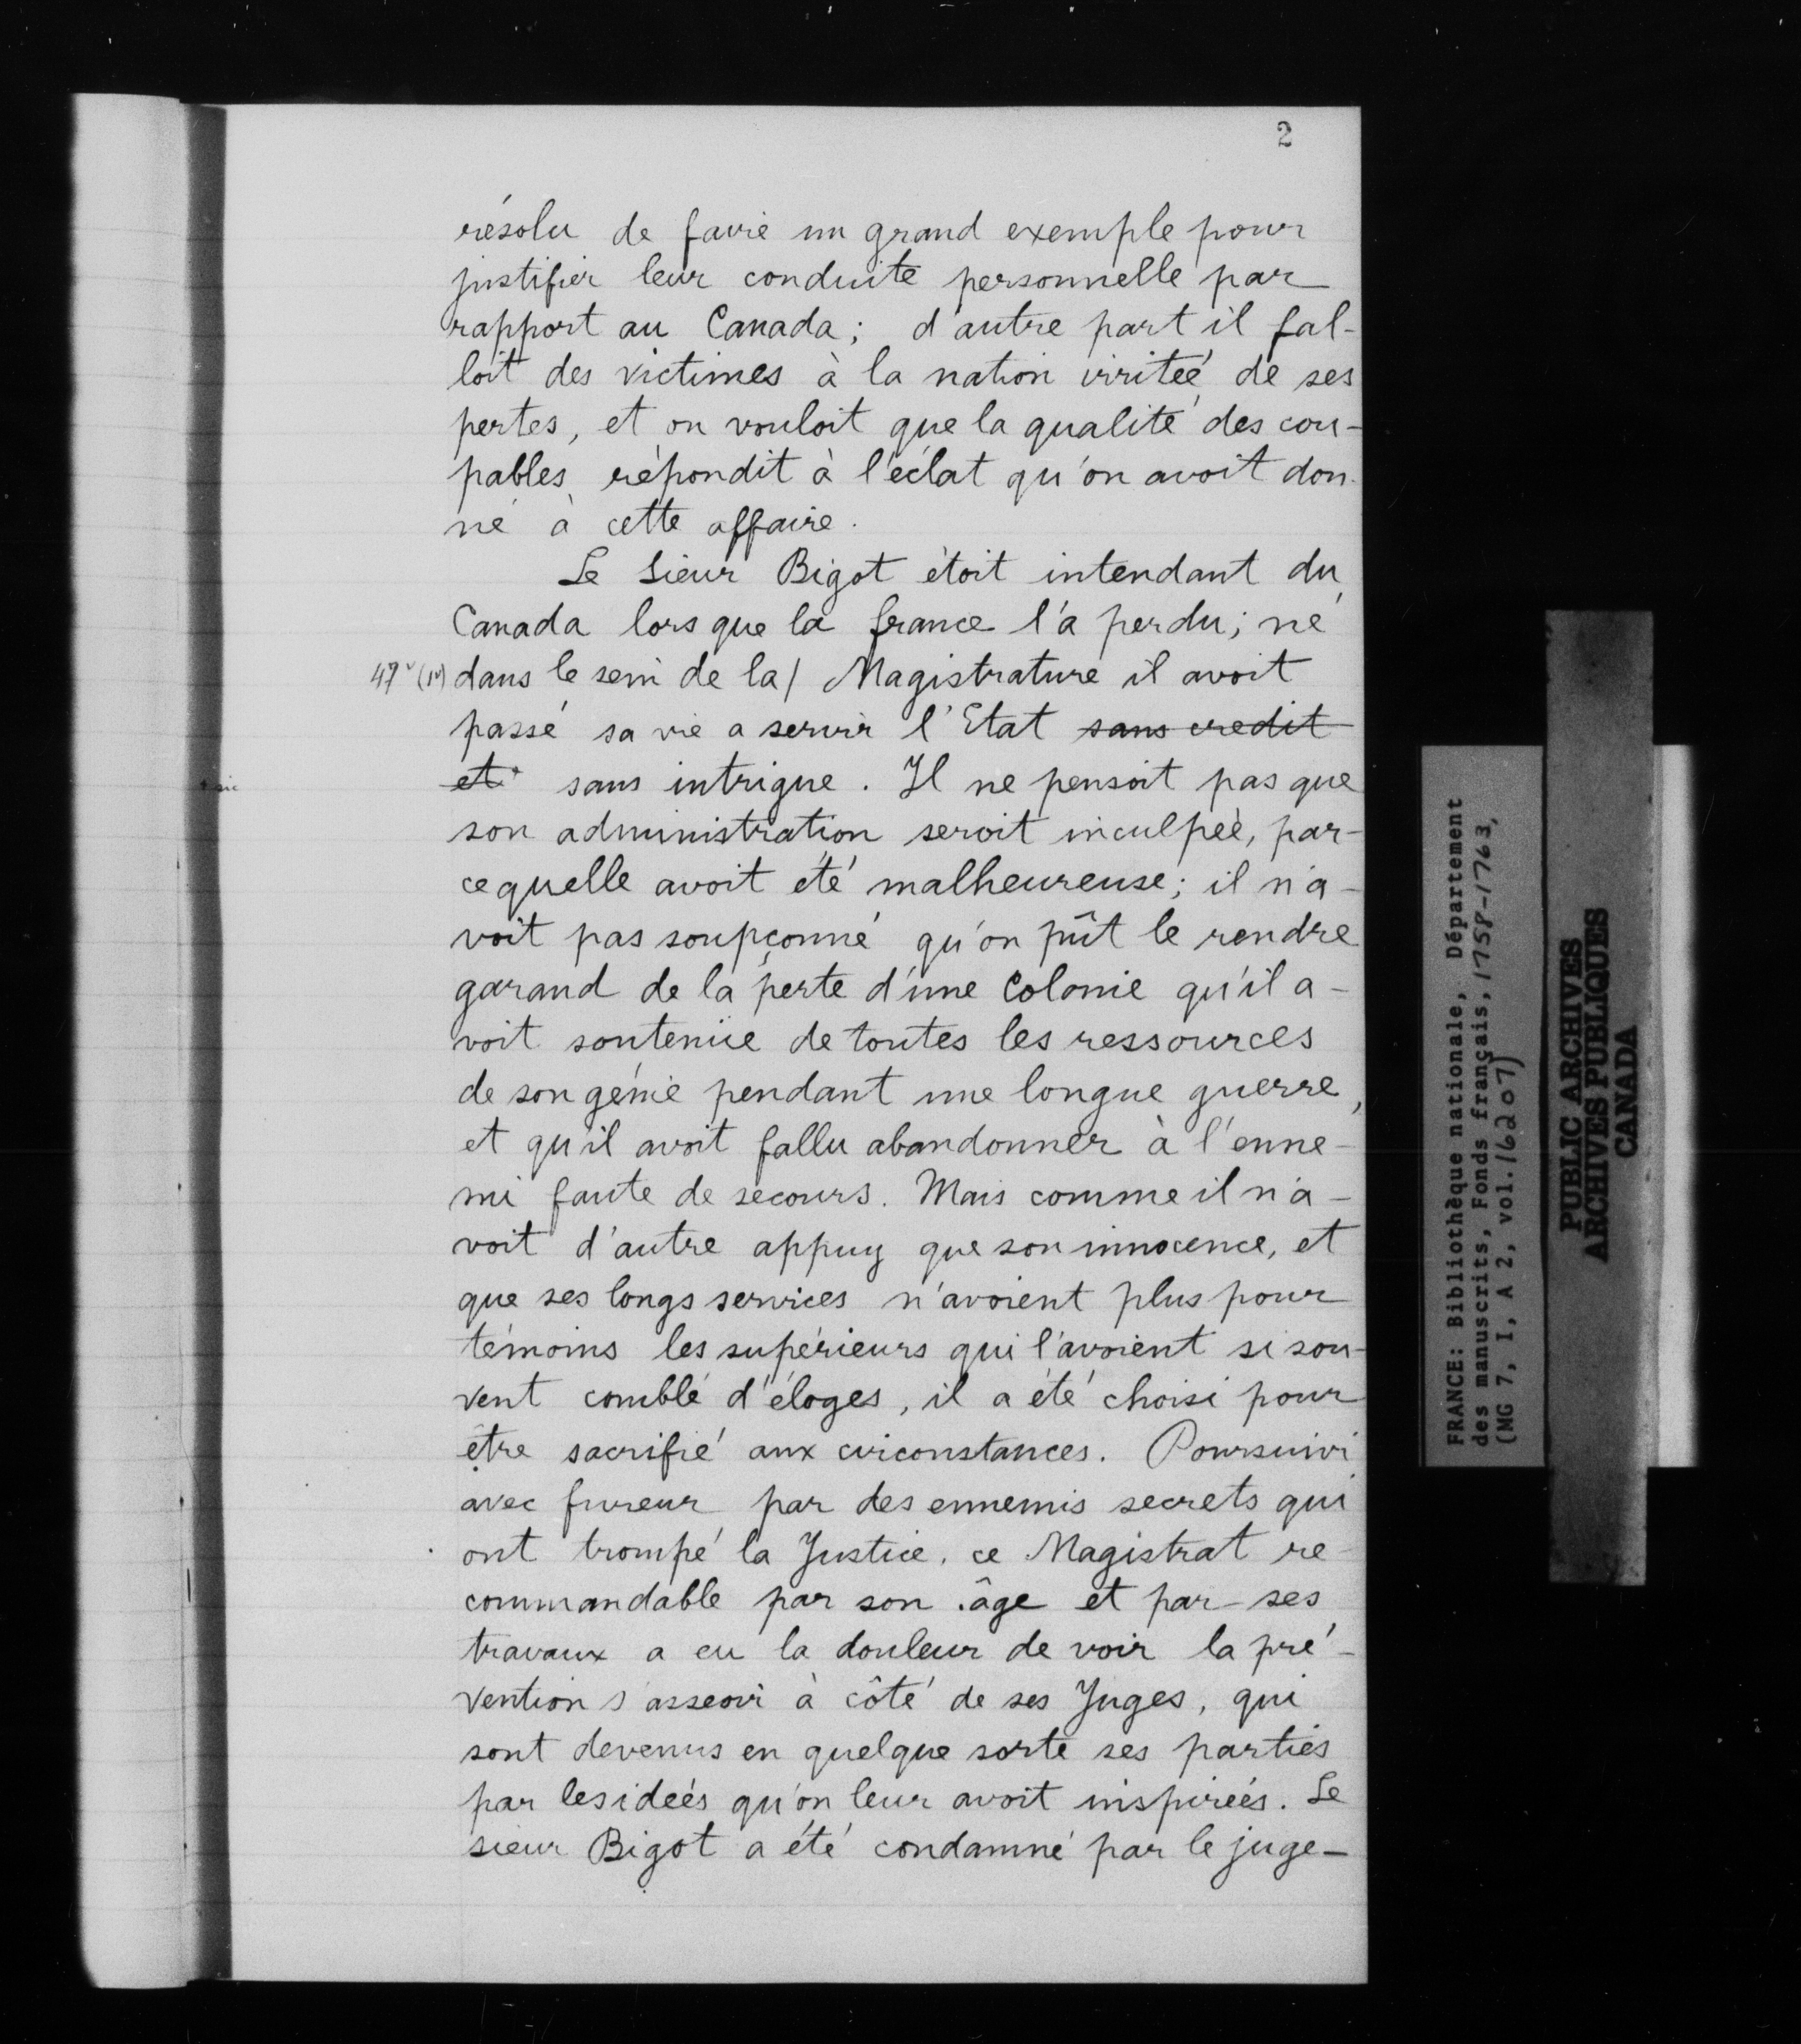 2
résolu de faire un grand exemple pour
justifier leur conduite personnelle par
rapport au Canada; d'autre part il fal-
loit des victimes à la nation irritée de ses
pertes, et on vouloit que la qualité des cou-
pables répondit à l'éclat qu'on avoit don-
né à cette affaire.
Le Sieur Bigot étoit intendant du
Canada lors que la france l'a perdu; né
47v (1v) dans le sein de la / Magistrature il avoit
passé sa vie a servir l'Etat sans credit
+ sic et+ sans intrigue. Il ne pensoit pas que
son administration seroit inculpée, par-
ce quelle avoit été malheureuse; il n'a-
voit pas soupçonné qu'on pût le rendre
garand de la perte d'une Colonie qu'il a-
voit soutenüe de toutes les ressources
de son génie pendant une longue guerre,
et qu'il avoit fallu abandonner à l'enne-
mi faute de secours. Mais comme il n'a-
voit d'autre appuy que son innocence, et
que ses longs services n'avoient plus pour
témoins les supérieurs qui l'avoient si sou-
vent comblé d'éloges, il a été choisi pour
être sacrifié aux circonstances. Poursuivi
avec fureur par des ennemis secrets qui
ont trompé la Justice, ce Magistrat re-
commandable par son âge et par ses
travaux a eu la douleur de voir la pré-
vention s'asseoir à côté de ses Juges, qui
sont devenus en quelque sorte ses parties
par les idées qu'on leur avoit inspirées. Le
sieur Bigot a été condamné par le juge-
FRANCE: Bibliothèque nationale, Département
des manuscrits, Fonds français, 1758-1763,
(MG 7, I, A 2, vol. 16207)
PUBLIC ARCHIVES
ARCHIVES PUBLIQUES
CANADA